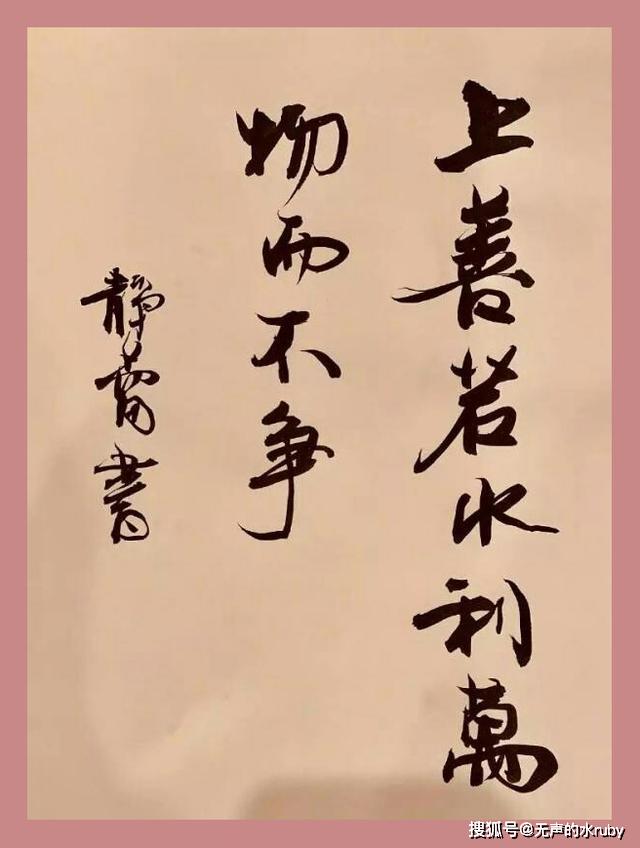 上善若水利萬
物而不爭
静蕾書
搜狐号@无声的水ruby